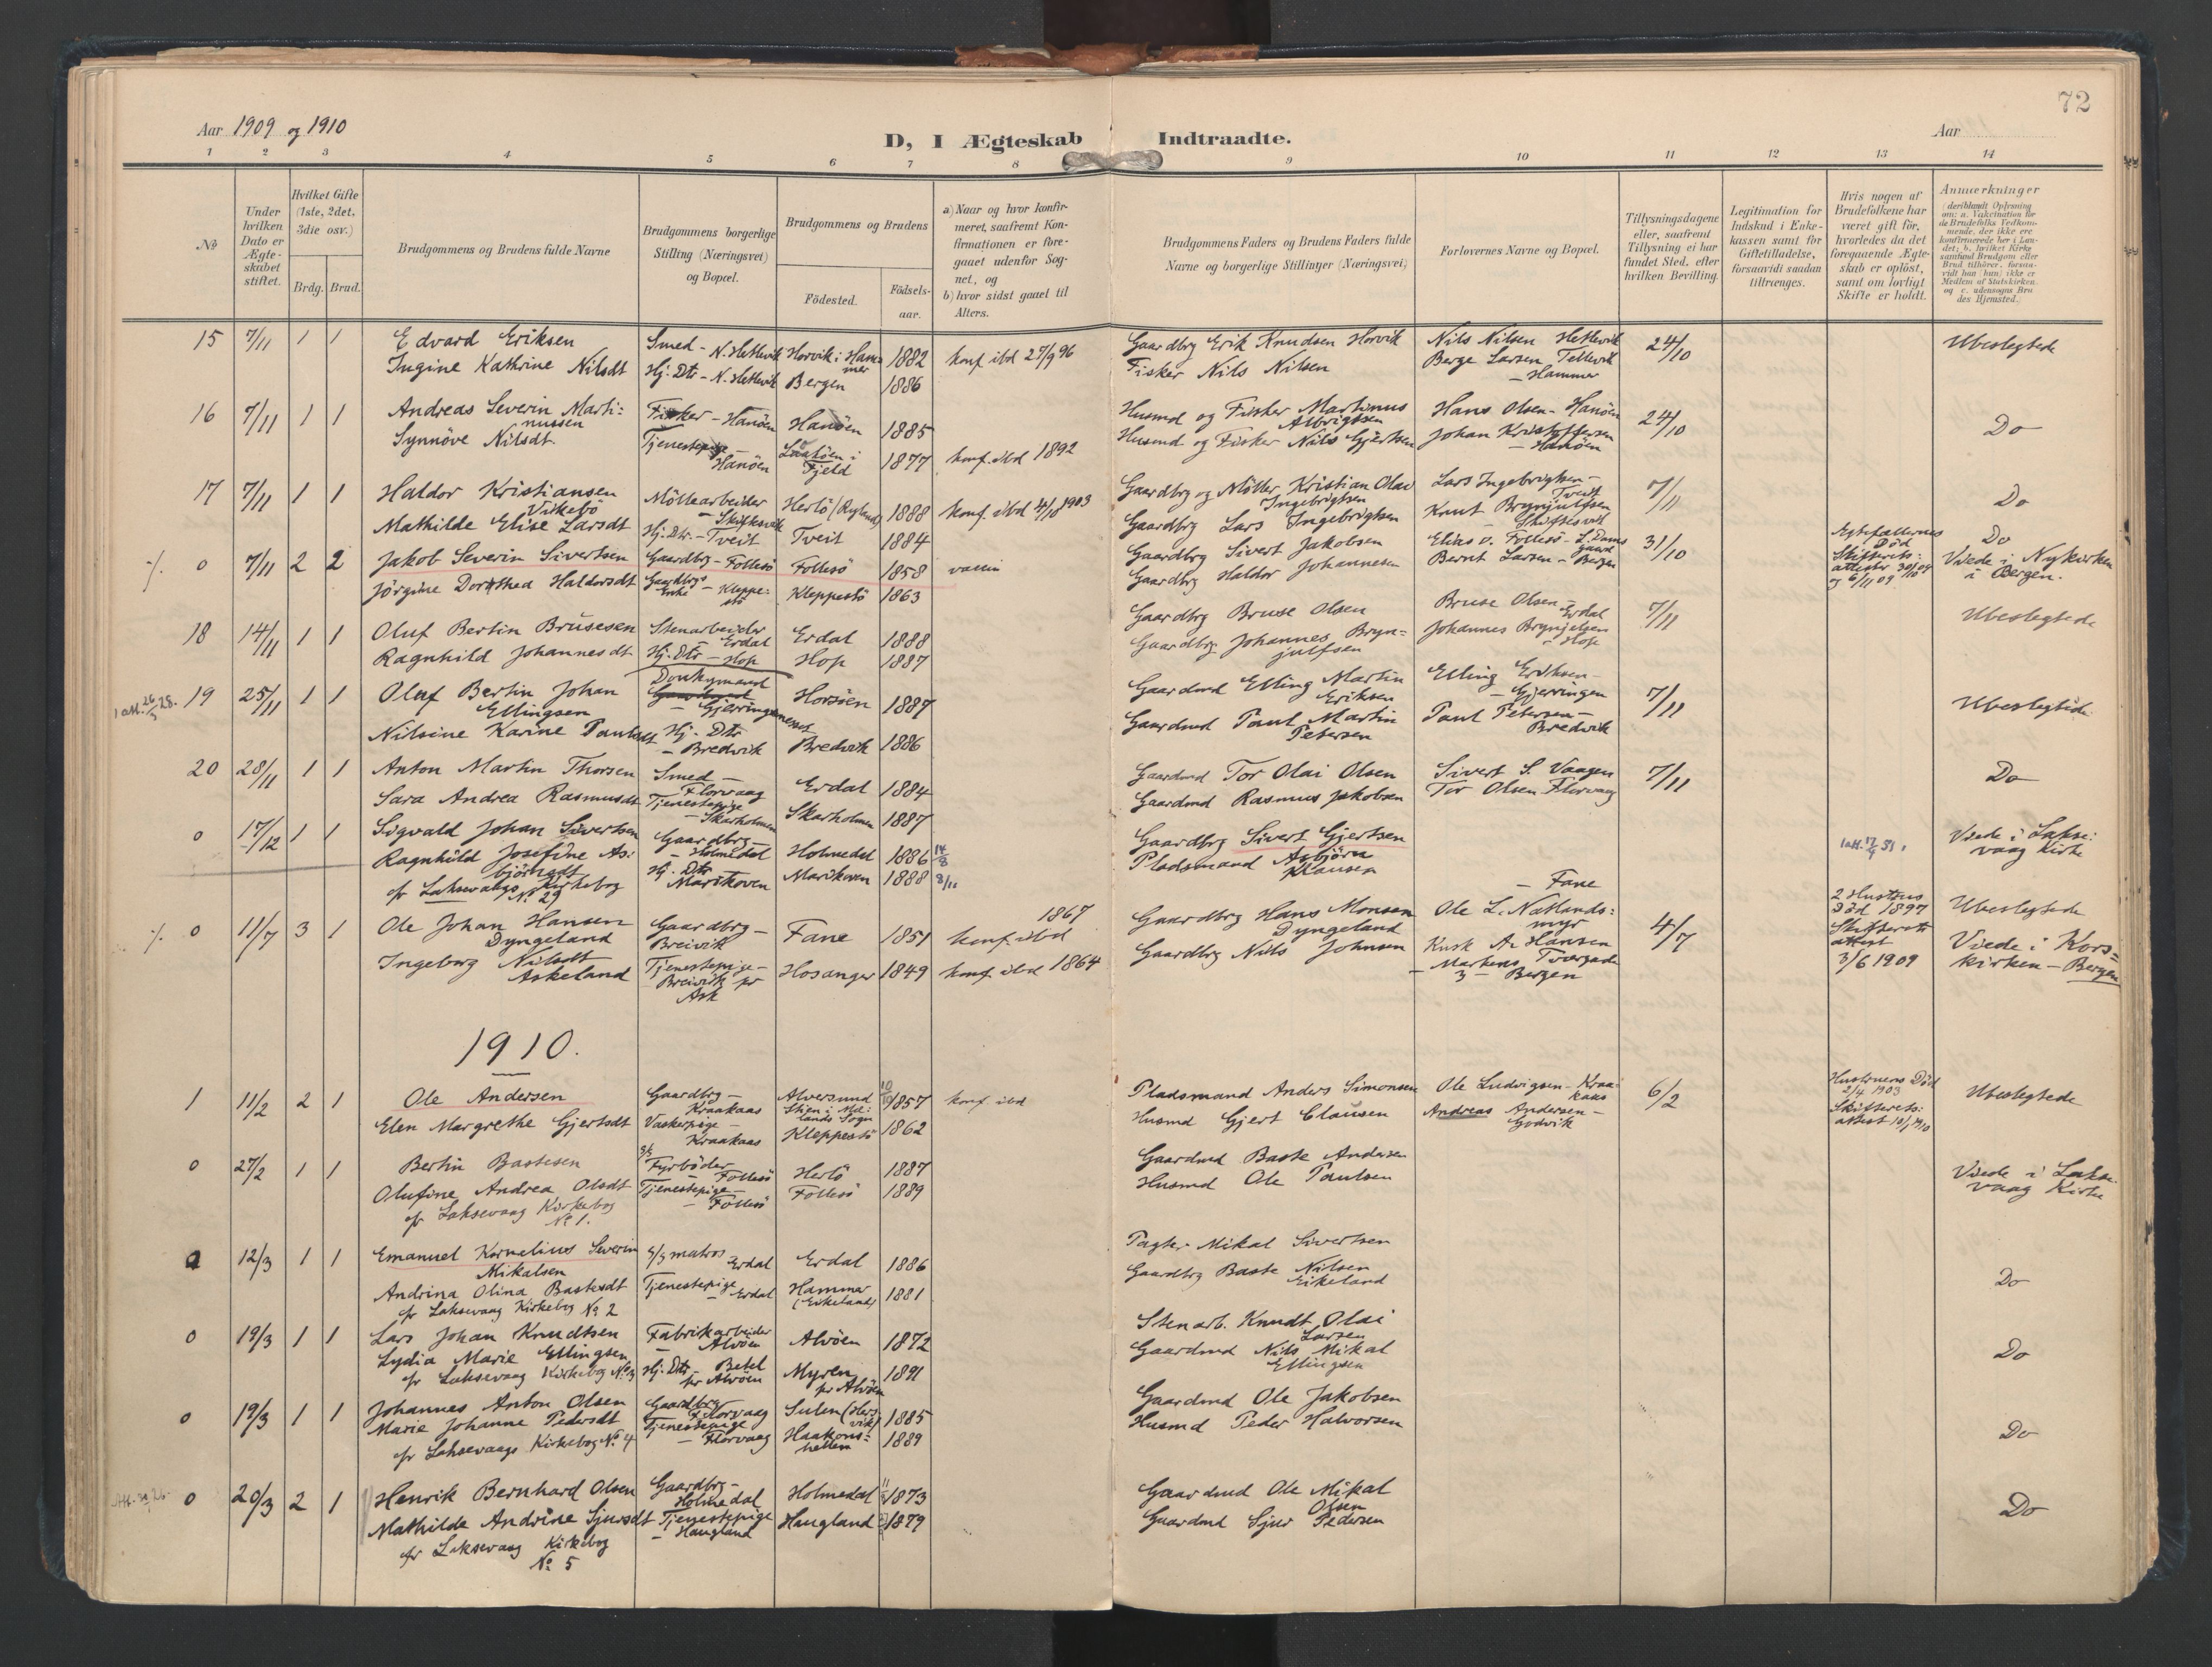 72
Aar 1909 og 1910
D, I Ægteskab Indtraadte.
Aar
1 2 3 4 5 6 7 8 9 10 11 12 13 14
No
Under hvilken Dato er Ægteskabet stiftet.
Hvilket Gifte (1ste, 2det, 3die osv.)
Brdg. Brud.
Brudgommens og Brudens fulde Navne
Brudgommens borgerlige Stilling (Næringsvei) og Bopæl.
Brudgommens og Brudens
Födested.
Födsels-aar.
a) Naar og hvor konfirmeret, saafremt Konfirmationen er foregaaet udenfor Sognet, og
b) hvor sidst gaaet til Alters.
Brudgommens Faders og Brudens Faders fulde Navne og borgerlige Stillinger (Næringsvei)
Forlovernes Navne og Bopæl.
Tillysningsdagene eller, saafremt Tillysning ei har fundet Sted, efter hvilken Bevilling.
Legitimation for Indskud i Enkekassen samt for Giftetilladelse, forsaavidt saadan tiltrænges.
Hvis nogen af Brudefolkene har været gift för, hvorledes da det foregaaende Ægteskab er oplöst, samt om lovligt Skifte er holdt.
Anmærkninger (deriblandt Oplysning om: a. Vakcination for de Brudefolks Vedkommende, der ikke ere konfirmerede her i Landet; b. hvilket Kirkesamfund Brudgom eller Brud tilhörer, forsaavidt han (hun) ikke er Medlem af Statskirken og c. udensogns Brudes Hjemsted.)
15 7/11 1 1 Edvard Eriksen Smed - N. Hetlevik Horvik i Hammer 1882 konf. ibd 27/9 96 Gaardbrg Erik Knudsen Horvik Nils Nilsen Hetlevik 24/10 Ubeslegtede
Ingine Kathrine Nilsdt Hj. Dtr - N. Hetlevik Bergen 1886 Fisker Nils Nilsen Berge Larsen Tellevik - Hammer
16 7/11 1 1 Andreas Severin Martinussen Fisker - Hanöen Hanöen 1885 Husmd og Fisker Martinus Albrigtsen Hans Olsen - Hanöen 24/10 Do
Synnöve Nilsdt. Tjenestepige - Hanöen i Fjeld 1877 konf. ibd 1892 Husmd og Fisker Nils Gjertsen Johan Kristoffersen - Hanöen
17 7/11 1 1 Haldor Kristiansen Virkebö Möllearbeider - Skiftesvik Herlö 1888 konf. ibd 4/10 1903 Gaardbrg og Möller Kristian Olai Ingebrigtsen Lars Ingebrigtsen - Tveit 7/11 Do
Mathilde Elise Larsdt Hj. Dtr - Tveit Tveit 1884 Gaardbrg Lars Ingebrigtsen Knut Brynjulfsen - Skiftesvik
./. 0 7/11 2 2 Jakob Severin Sivertsen Gaardbrg - Follesö Follesö 1858 Gaardbrg Sivert Jakobsen Elias v. Follesö - L. Dams Gaard 31/10 Egtefællernes Död Skifterets: attester 30/10 09 og 6/11 09 Do Viede i Nykirken i Bergen.
Jörgine Dorthea Haldorsdt Gaardbrgs Enke - Kleppestö Kleppestö 1863 Gaardbrg Haldor Johannesen Bernt Larsen - Bergen
18 14/11 1 1 Oluf Bertin Brüsesen Stenarbeider Erdal Erdal 1888 Gaardbrg Bruse Olsen Bruse Olsen - Erdal 7/11 Ubeslegtede
Ragnhild Johannesdt Hj. Dtr - Hop Hop 1887 Gaardbrg Johannes Brynjulfsen Johannes Brynjelsen - Hop
1 att. 26/3 28. 19 25/11 1 1 Oluf Bertin Johan Ellingsen Donkymand - Gjerringeneset Horsöen 1887 Gaardmd Elling Martin Eriksen Elling Eriksen - Gjerringen 7/11 Ubeslegtede
Nilsine Karine Paulsdt Hj. Dtr - Bredvik Bredvik 1886 Gaardmd Paul Martin Petersen Paul Petersen - Bredvik
20 28/11 1 1 Anton Martin Thorsen Smed - Florvaag Erdal 1884 Gaardmd Tor Olai Olsen Sivert S. Vaagen 7/11 Do
Sara Andrea Rasmusdt Tjenestepige - Skarholmen Skarholmen 1887 Gaardmd Rasmus Jakobsen Tor Olsen Florvaag
0 17/12 1 1 Sigvald Johan Sivertsen Gaardbrg - Holmedal Holmedal 1886 14/8 Gaardbrg Sivert Gjertsen Viede i Laksevaag Kirke
Ragnhild Josefine Asbjörnsdt Hj. Dtr Marikoven Marikoven 1888 8/11 Pladsmand Asbjörn Klausen
fr Laksevaags Kirkebog No 29
./. 0 11/7 3 1 Ole Johan Hansen Dyngeland Gaardbrg - Breivik Fane 1851 konf. ibd 1867 Gaardbrg Hans Monsen Dyngeland Ole L. Natlandsmyr - Fane 4/7 2 Hustrus Död 1897 Skifterets attest 3/6 1909 Ubeslegtede Viede i Korskirken - Bergen
Ingeborg Nilsdt Askeland Tjenestepige - Breivik pr Ask Hosanger 1849 konf. ibd 1864 Gaardbrg Nils Johnsen Kusk A. Hansen - Markens Tvergade 3 - Bergen
1910.
1 11/2 2 1 Ole Andersen Gaardbrg - Kraakaas Alversund 10/10 1857 konf. ibd Pladsmand Anders Simonsen Ole Ludvigsen - Kraakaas 6/2 Hustruens Död 2/4 1903 Skifterets: attest 10/1 1910 Ubeslegtede
Elen Margrethe Gjertsdt Vaskerpige - Kraakaas Kleppestö 1862 Husmd Gjert Clausen Andreas Andersen - Godvik
0 27/2 1 1 Bertin Bastesen Fyrböder - Follesö Herlö 1887 Gaardmd Baste Andersen Viede i Laksevaag Kirke
Olufine Andrea Olsdt Tjenestepige - Follesö Follesö 1889 Husmd Ole Paulsen
fr Laksevaag Kirkebog No 1.
0 12/3 1 1 Emanuel Kornelius Severin Mikalsen matros Erdal Erdal 1886 Pagter Mikal Sivertsen Do
Andrina Olina Bastesdt Tjenestepige - Erdal Hammer (Eikeland) 1881 Gaardbrg Baste Nilsen Eikeland
fr Laksevaag Kirkebog No 2
0 19/3 1 1 Lars Johan Knudtsen Fabrikarbeider - Alvöen Alvöen 1872 Stenarb. Knudt Olai Larsen Do
Lydia Marie Ellingsen Hj. Dtr - Betel pr Alvöen Myren pr Alvöen 1891 Gaardmd Nils Mikal Ellingsen
fr Laksevaag Kirkebog No 3
0 19/3 1 1 Johannes Anton Olsen Gaardbrg Florvaag Sulen 1885 Gaardmd Ole Jakobsen Do
Marie Johanne Pedersdt Tjenestepige - Florvaag Haakonshellen 1889 Husmd Peder Halvorsen
fr Laksevaags Kirkebog No. 4
0 20/3 2 1 Henrik Bernhard Olsen Gaardbrg - Holmedal Holmedal 1873 Gaardmd Ole Mikal Olsen Do
Mathilde Andrine Sjursdt Tjenestepige - Haugland Haugland 1879 Gaardmd Sjur Pedersen
fr Laksevaag Kirkebog No 5